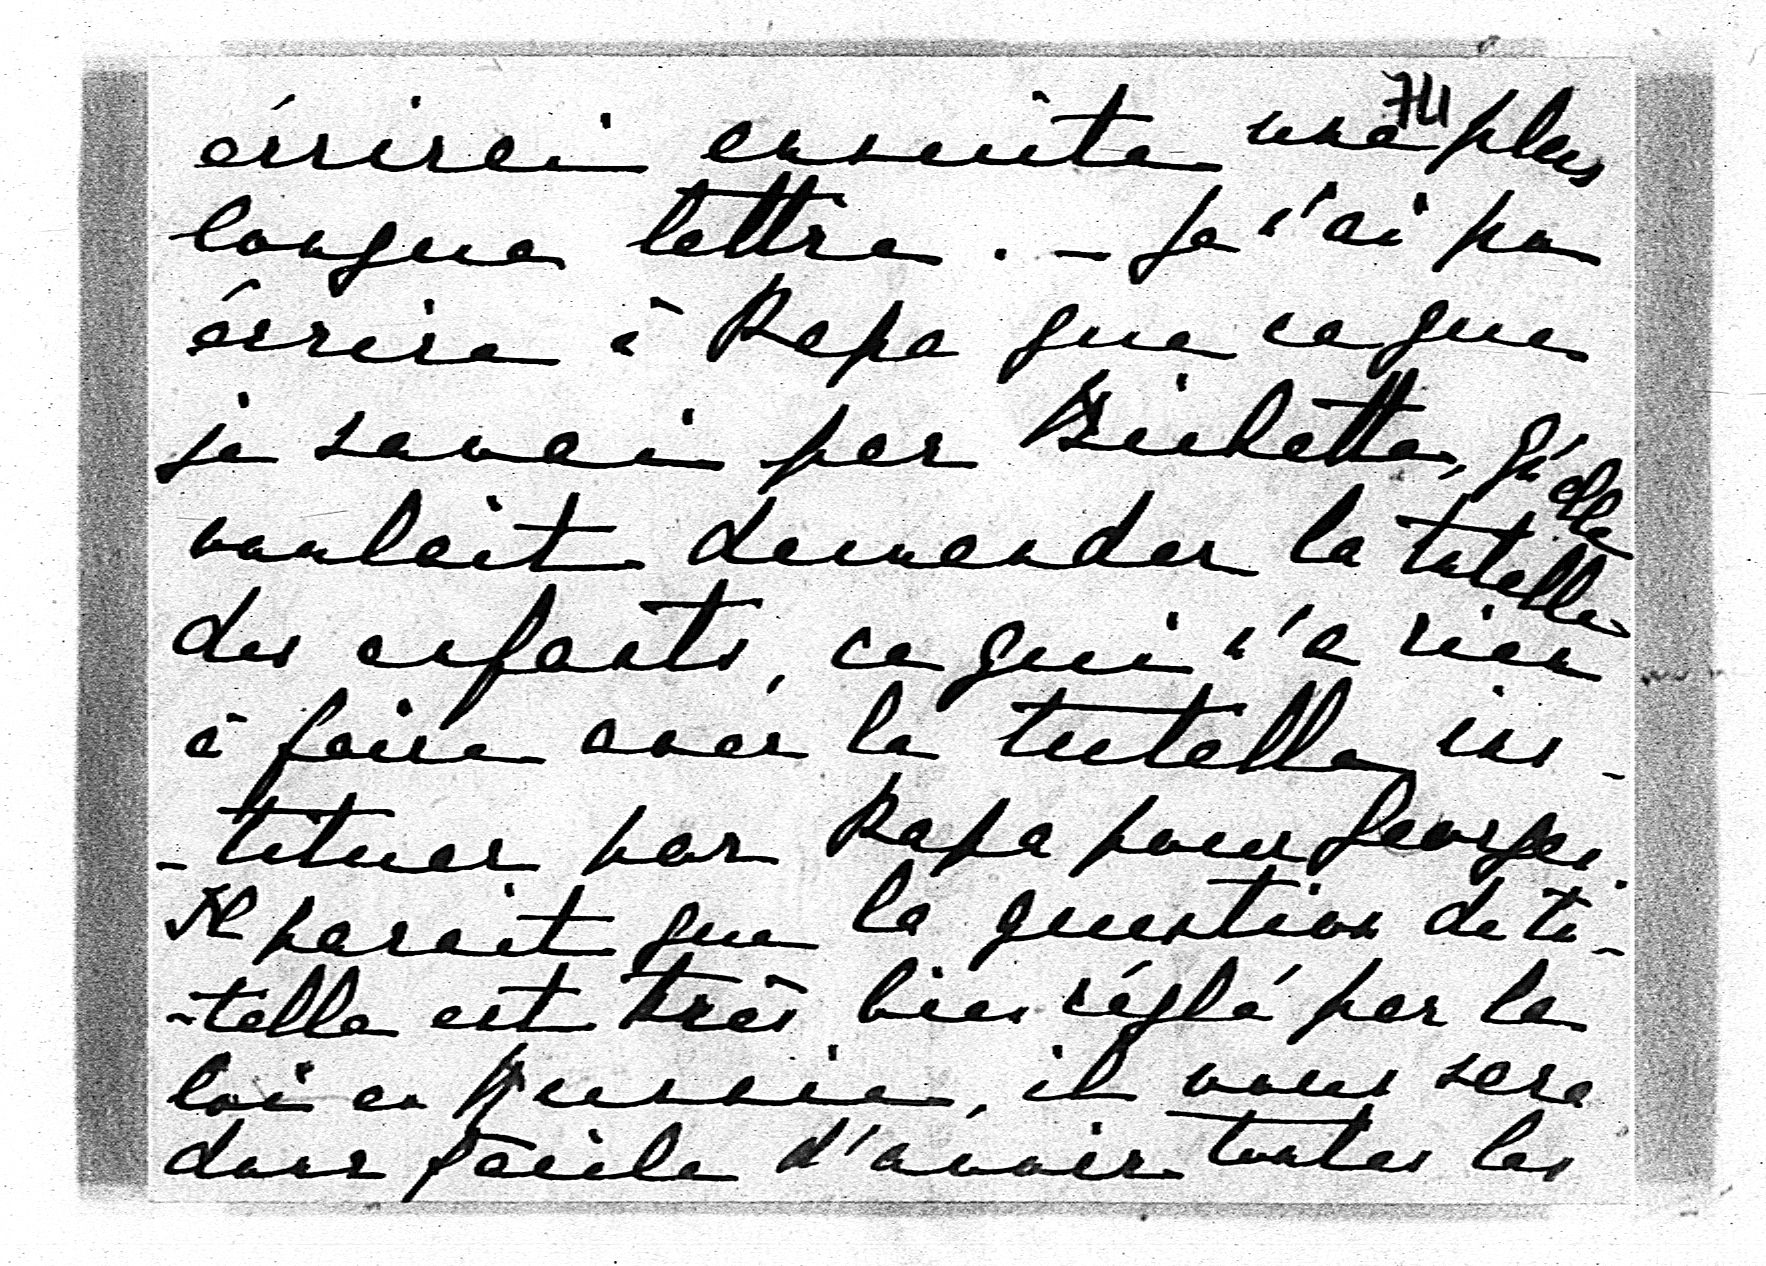 741
écrirai ensuite une plus
longue lettre. – Je n'ai pu
écrire à Papa que ce que
je savais par Bichette, qu'elle
voulait demander la tutelle
des enfants, ce qui n'a rien
à faire avec la tutelle ins-
-tituer par Papa pour Georges.
Il parait que la question de tu-
-telle est très bien réglé par la
loi en Russie, il vous sera
donc facile d'avoir toutes les